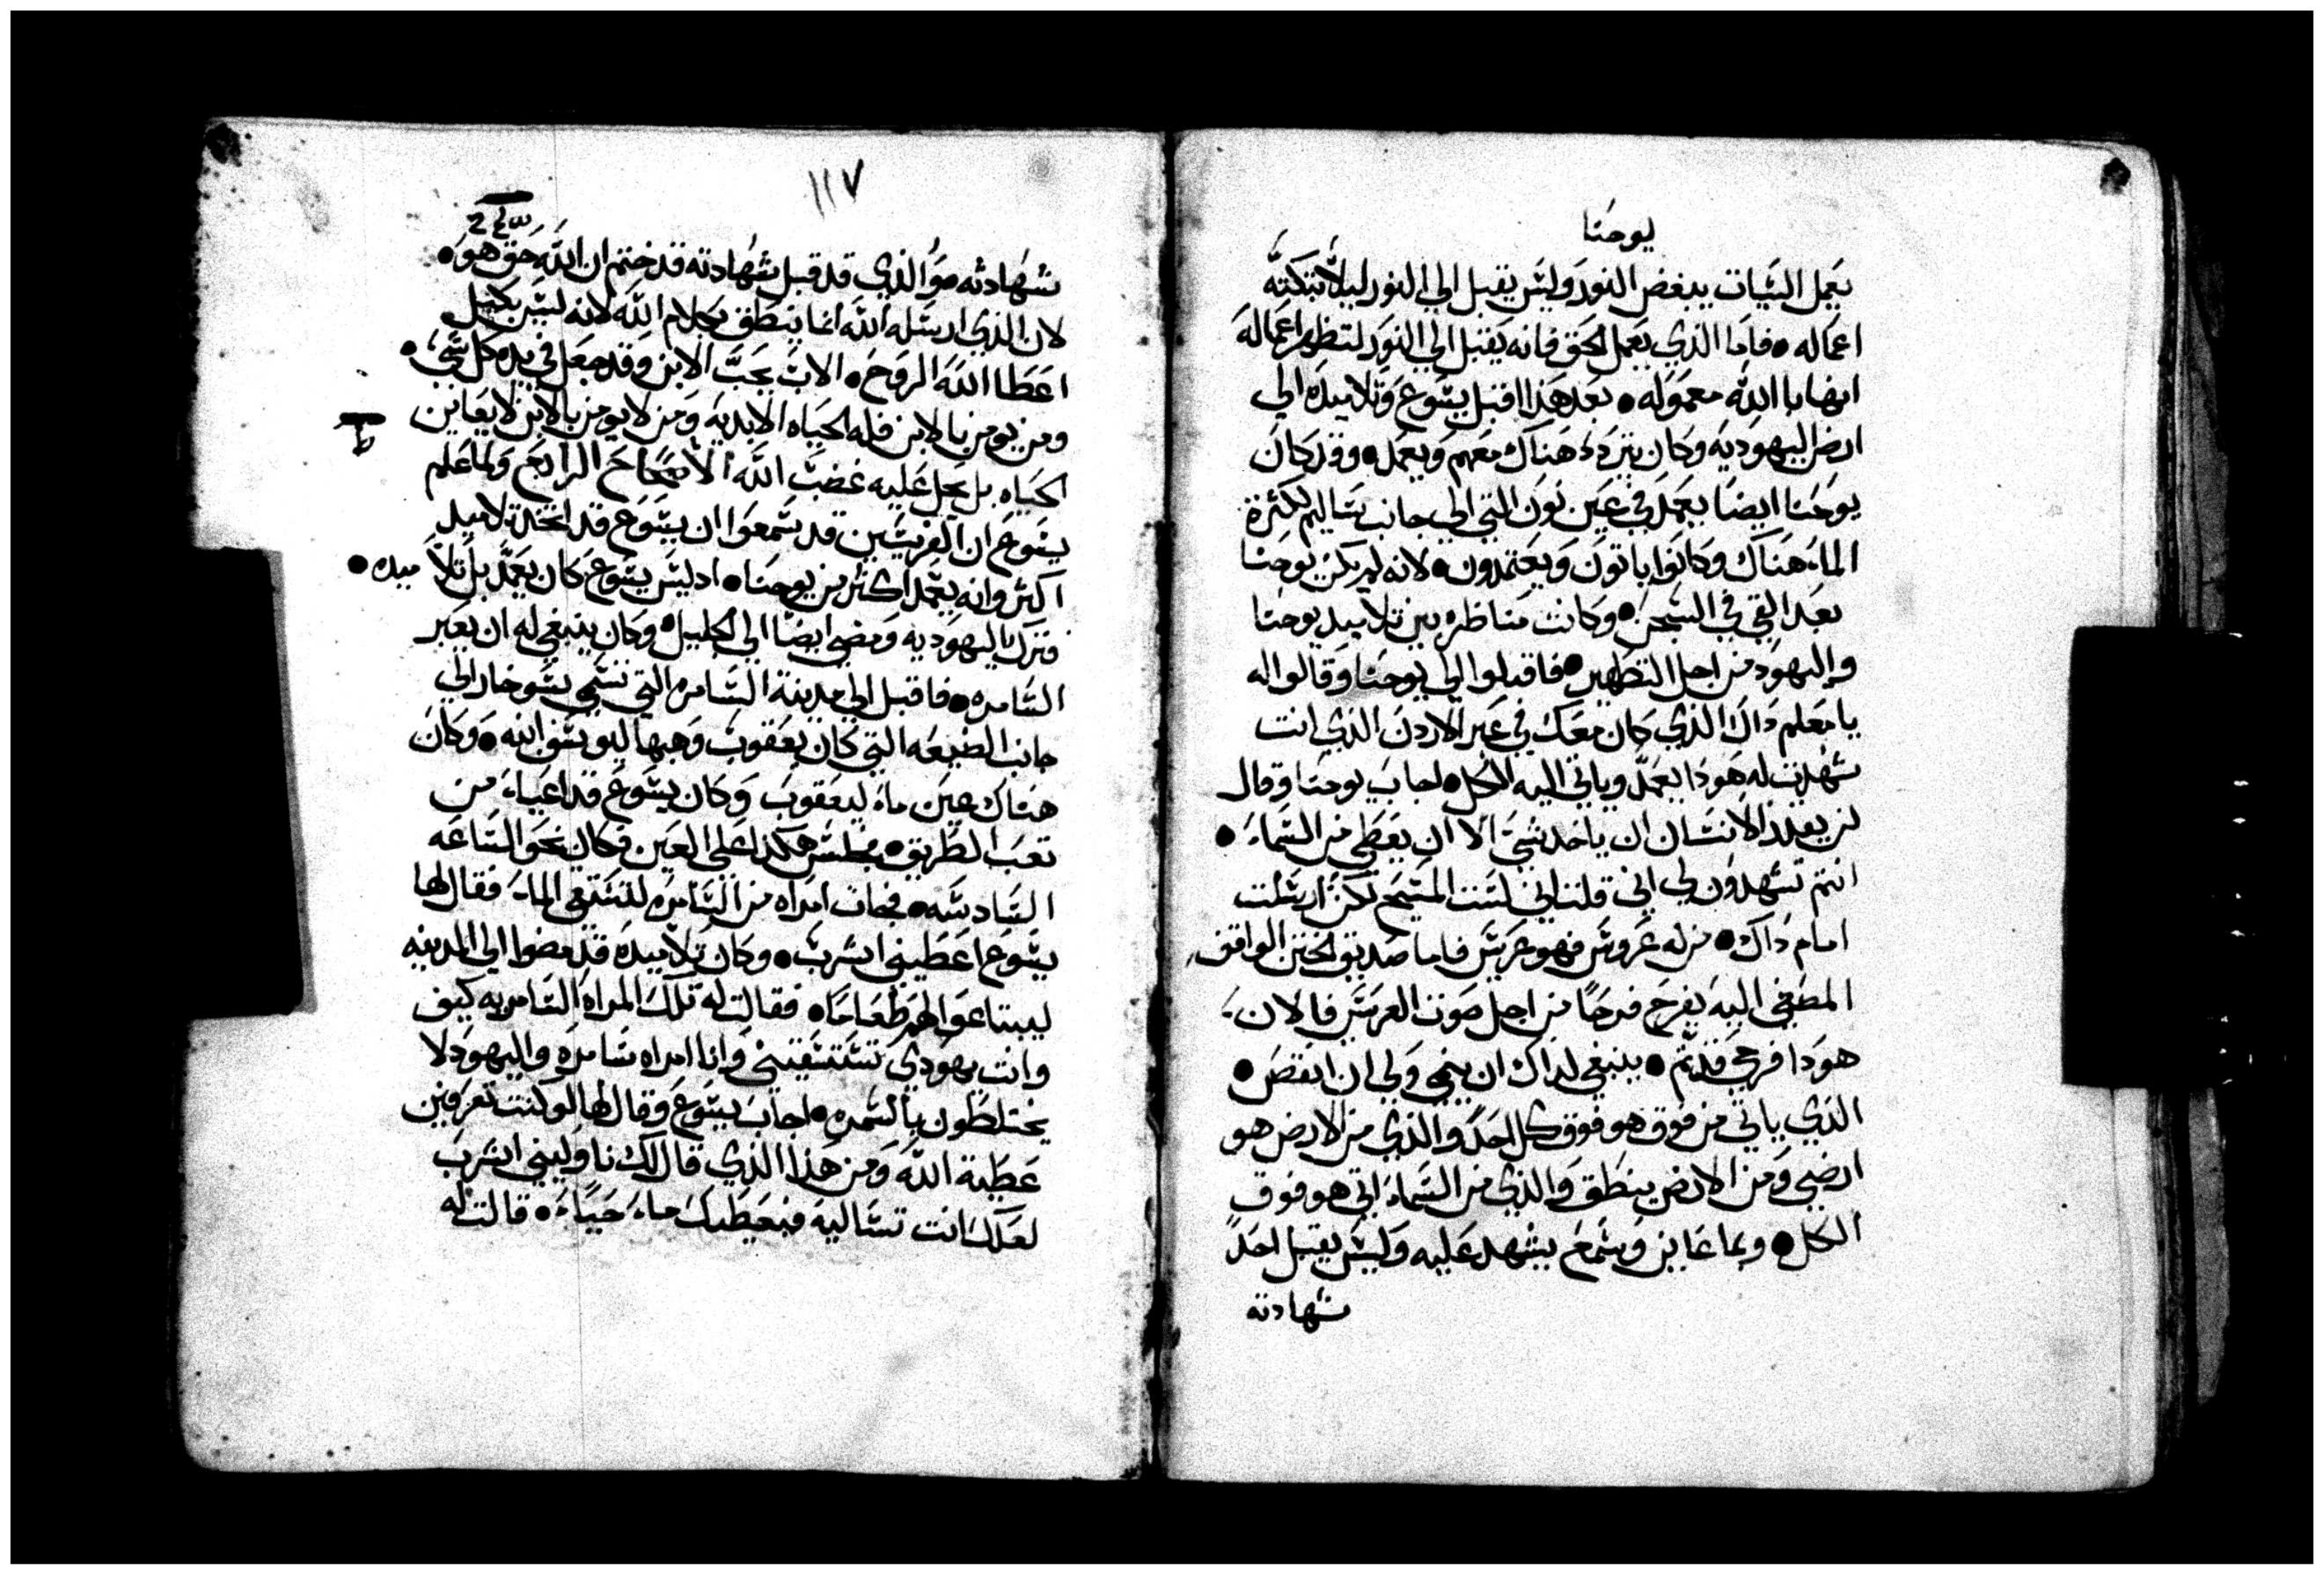 يوحنا
يعمل السيات يبغض النور وليس يقبل الي النور ليلا تبكته
اعماله ● فاما الذي يعمل الحق فانه يقبل الي النور لتظهر اعماله
انها باالله معموله ● بعد هذا اقبل يسوع وتلاميده الي
ارض اليهوديه وكان يتردد هناك معهم ويعمد ● وقد كان
يوحنا ايضا يعمد في عين نون التي الي جانب ساليم لكثرة
الماء هناك وكانوا ياتون ويعتمدون ● لانه لم يكن يوحنا
بعد القي في السجن ● وكانت مناظره بين تلاميد يوحنا
واليهود من اجل التطهير ● فاقبلوا الي يوحنا وقالوا له
يا معلم داك الذي كان معك في عبر الاردن الذي انت
شهدت له هودا يعمد وياتي اليه الكل ● اجاب يوحنا وقال
لن يقدر الانسان ان ياخد شي الا ان يعطي من السماء ●
انتم تشهدون لي اني قلت اني لست المسيح لكن ارسلت
امام داك ● من له عروس فهو عريس فاما صديق الختن الواقف
المصغي اليه يفرح فرحا من اجل صوت العريس فالان
هودا فرحي قد تم ● ينبغي لداك ان ينمي ولي ان انقص ●
الذي ياتي من فوق هو فوق كل احد والذي من الارض هو
ارضي ومن الارض ينطق والذي من السماء اتي هو فوق
الكل ● وبما عاين وسمع يشهد عليه وليس يقبل احد
شهادته
١١٧
شهادته هو والذي قد قبل شهادته قد ختم ان الله حق هو ●
لان الذي ارسله الله انما ينطق بكلام الله لانه ليس بكيل
اعطا الله الروح ● الاب يحب الابن وقد جعل في يده كل شي ●
ومن يومن بالابن فله الحياه الابديه ومن لا يومن بالابن لا يعاين
الحياه بل يحل عليه غضب الله الاصحاح الرابع ولما علم
يسوع ان الفريسين قد سمعوا ان يسوع قد اتخد تلاميد
اكثر وانه يعمد اكثر من يوحنا ● اد ليس يسوع كان يعمد بل تلاميده ●
فترك اليهوديه ومضي ايضا الي الجليل ● وكان ينبغي له ان يعبر
السامره ● فاقبل الي مدينة السامره التي تسمي سوخار الي
جانب الضيعه التي كان يعقوب وهبها ليوسف ابنه ● وكان
هناك عين ماء ليعقوب وكان يسوع قد اعياء من
تعب الطريق ● فجلس هكدا علي العين وكان نحو الساعه
السادسه ● فجات امراه من السامره لتستقي الماء فقال لها
يسوع اعطيني اشرب ● وكان تلاميده قد مضوا الي المدينه
ليبتاعوا لهم طعاما ● فقالت له تلك المراه السامريه كيف
وانت يهودي تستسقيني وانا امراه سامره واليهود لا
يختلطون بالسمره ● اجاب يسوع وقال لها لو كنت تعرفين
عطية الله ومن هدا الذي قال لك ناوليني اشرب
لعلك انت تساليه فيعطيك ماء حياء ● قالت له